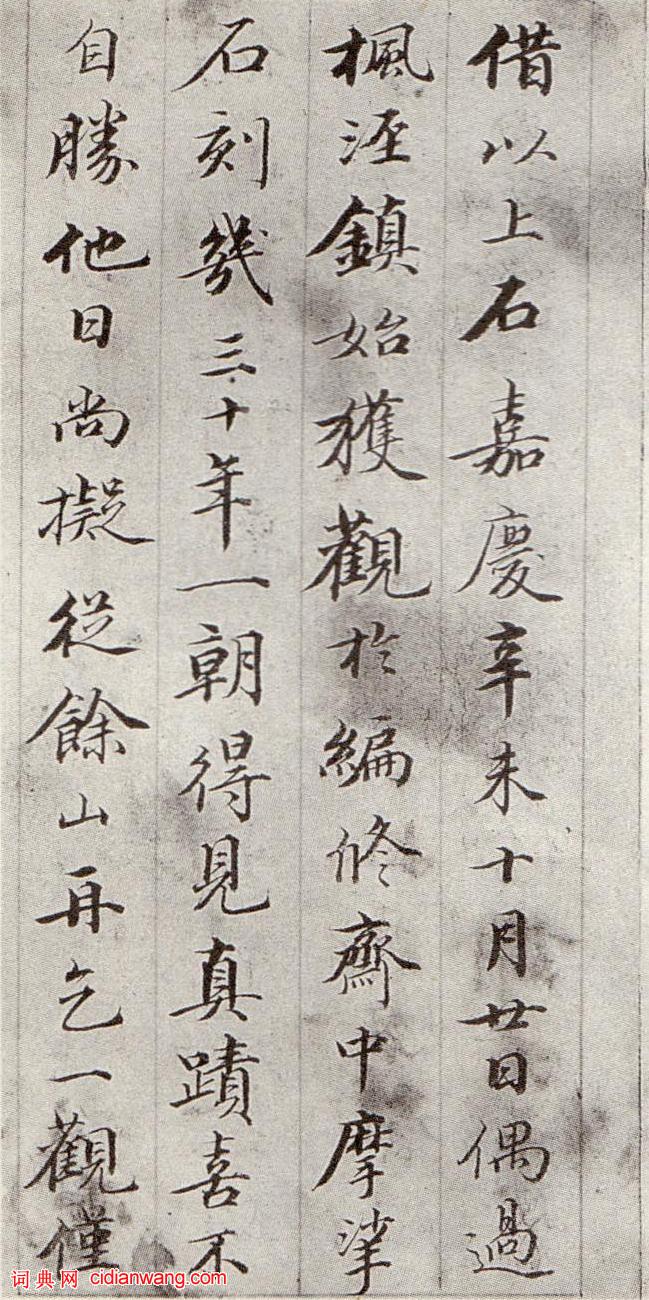 借以上石嘉慶辛未十月廿日偶過
楓涇鎮始獲觀於編修齋中摩挲
石刻幾三十年一朝得見真蹟喜不
自勝他日尚擬從餘山再乞一觀僅
词典网 cidianwang.com